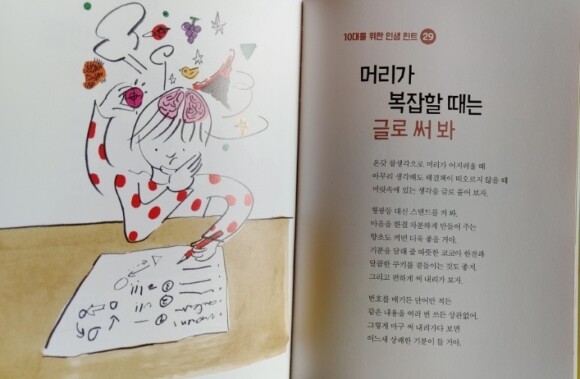 10대를 위한 인생 힌트 29
머리가
복잡할 때는
글로 써 봐
온갖 잡생각으로 머리가 어지러울 때
아무리 생각해도 해결책이 떠오르지 않을 때
머릿속에 있는 생각을 글로 풀어 보자.
형광등 대신 스탠드를 켜 봐.
마음을 한결 차분하게 만들어 주는
향초도 켜면 더욱 좋을 거야.
기분을 달래 줄 따뜻한 코코아 한잔과
달콤한 쿠키를 곁들이는 것도 좋지.
그리고 편하게 써 내리가 보자.
번호를 매기든 단어만 적든
같은 내용을 여러 번 쓰든 상관없어.
그렇게 마구 써 내리가다 보면
어느새 상쾌한 기분이 들 거야.